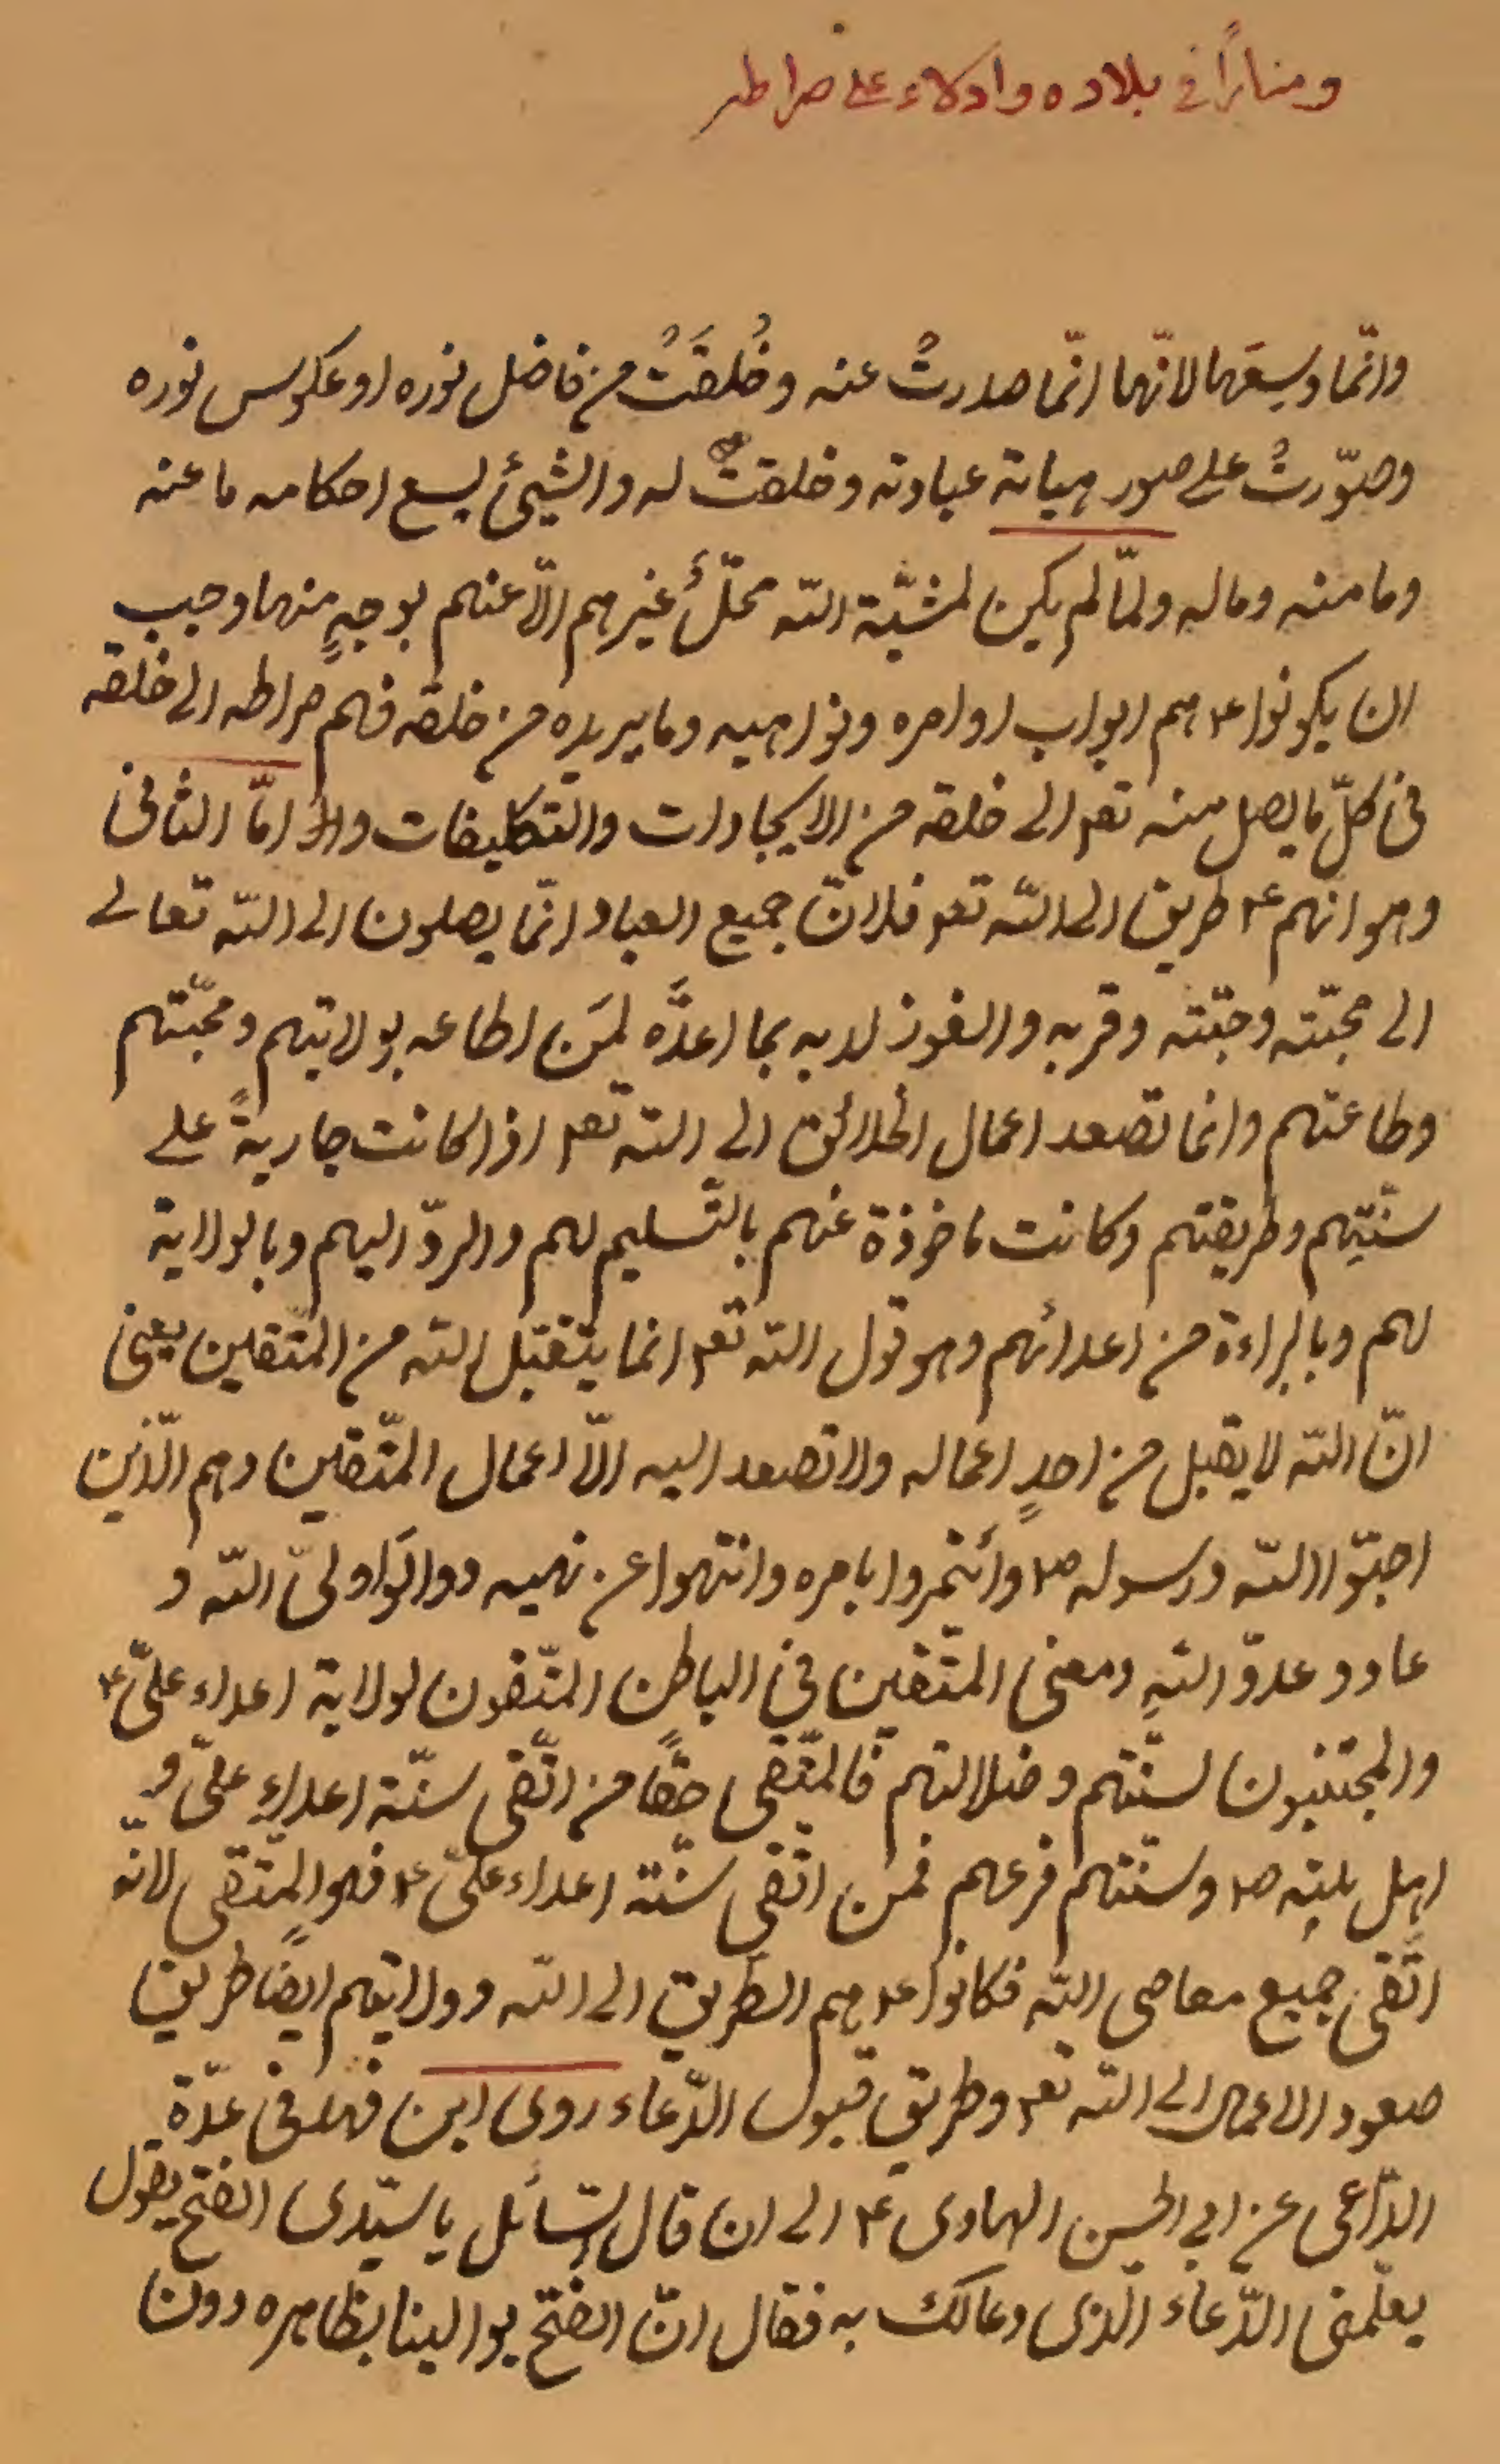 ومناراً في بلاده وادلاء على صراطه
وانّما وسعها لانّها انّما صدرتْ عنه وخُلقَتْ من فاضل نوره او عكوس نوره
وصوّرتْ على صور هياٰة عبادته وخلقتْ له والشيئ يسع احكامه ما عنه
وما منه وما له ولمّا لم يكن لمشيّة اللّه محلّ غيرهم الّا عنهم بوجهٍ منها وجب
ان يكونوا ع۴ هم ابواب اوامره ونواهيه وما يريده من خلقه فهم صراطه الى خلقه
في كلّ ما يصل منه تع۴ الى خلقه من الايجادات والتكليفات وامّا الثاني
وهو انهم ع۴ طريق الى اللّه تع۴ فلانّ جميع العباد انّما يصلون الى اللّه تعالى
الى محبّته وجنّته وقربه والفوز لديه بما اعدَّه لمَن اطاعه بولايتهم ومحبّتهم
وطاعتهم وانما تصعد اعمال الخلائق الى اللّه تع۴ اذا كانت جاريةً على
سنّتهم وطريقتهم وكانت ماخوذة عنهم بالتّسليم لهم والردّ اليهم وبالولاية
لهم وبالبراءة من اعدائهم وهو قول اللّه تع۴ انما يتقبّل اللّه من المتّقين يعني
انّ اللّه لا يقبل من احدٍ اعماله ولا تصعد اليه الّا اعمال المتّقين وهم الّذين
احبّوا اللّه ورسوله ص۴ وأتمروا بامره وانتهوا عن نهيه ووالَوا وليّ اللّه و
عادو عدوّ اللّهِ ومعنى المتّقين في الباطن المتّقون لولاية اعداء عليّ ع۴
والمجتنبون لسنّتهم وضلالتهم فالمتّقي حقًّا من اتّقى سنّة اعداءِ عليّ و
اهل بيته ص۴ وسنّتهم فرعهم فمن اتّقى سنّة اعداء عليّ ع۴ فهو المتّقي لانّه
اتَّقى جميع معاصي اللّه فكانوا ع۴ هم الطّريق الى اللّه وولايتهم ايضًا طريق
صعود الاعمال الى اللّه تع۴ وطريق قبول الدّعاء روى ابن فهد في عدّة
الدّاعي عن ابي الحسن الهادي ع۴ الى ان قال السّائل يا سيّدي الفتح يقول
يعلّمني الدّعاء الّذي دعا لك به فقال انّ الفتح يوالينا بظاهره دون